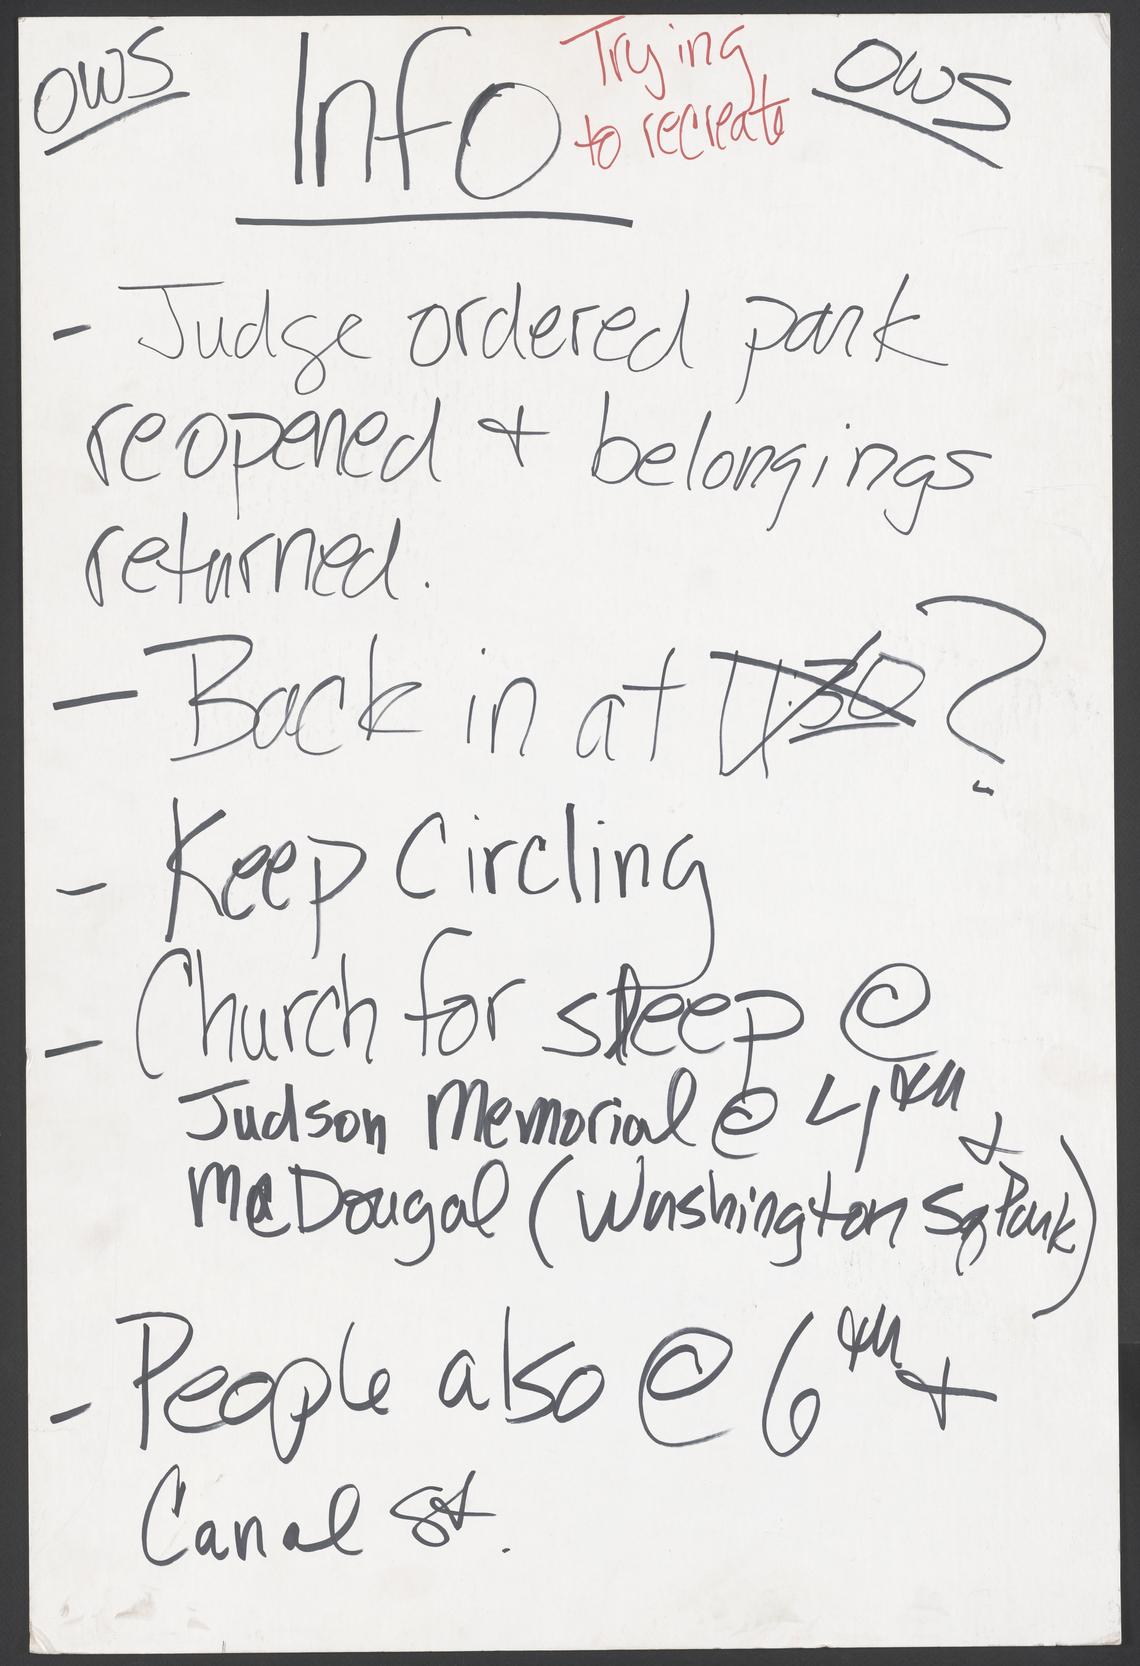 OWS Info Trying OWS
to recreate
- Judge ordered park
reopened + belongings
returned.
- Back in at 11:30 ?
- Keep Circling
- Church for sleep @
Judson Memorial @ 4th +
McDougal (Washington Sq Park)
- People also @ 6th +
Canal St.